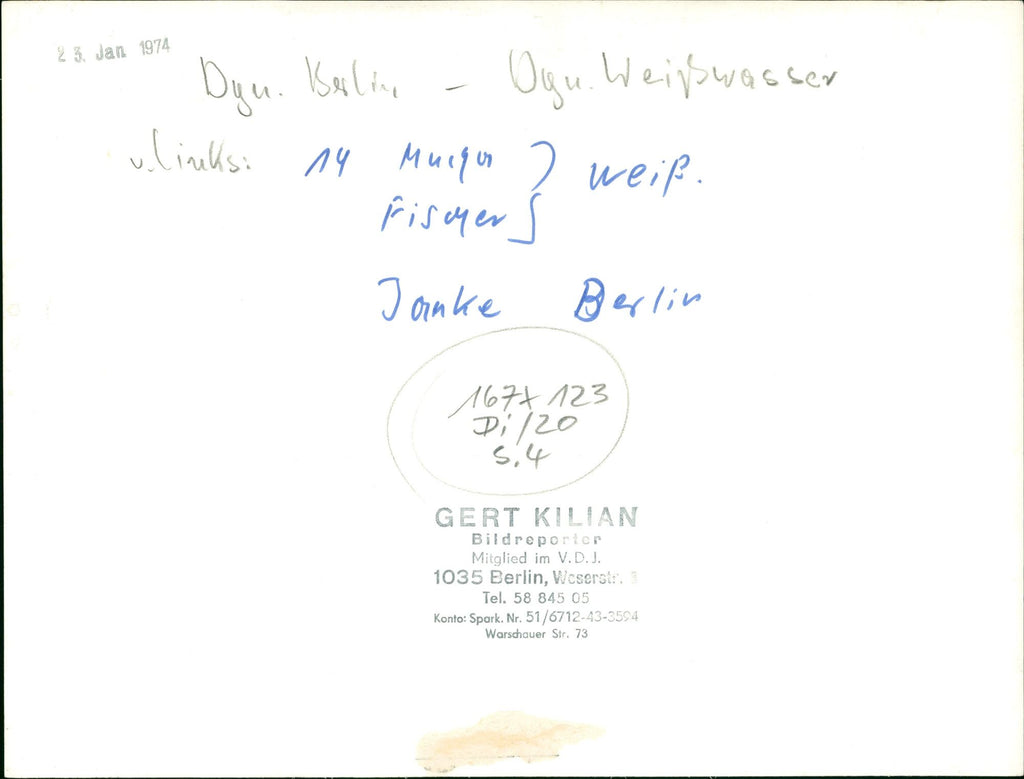 23. Jan 1974
Dyn. Berlin – Dyn. Weißwasser
v. links: 14 } weiß.
Fischer
Janke Berlin
167 x 123
Di/20
S.4
GERT KILIAN
Bildreporter
Mitglied im V.D.J.
1035 Berlin, Weserstr.
Tel. 58 845 05
Konto: Spark. Nr. 51/6712-43-3594
Warschauer Str. 73